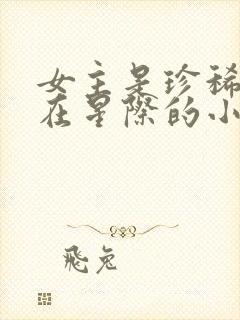 女主是珍稀
在星际的小
飛兔